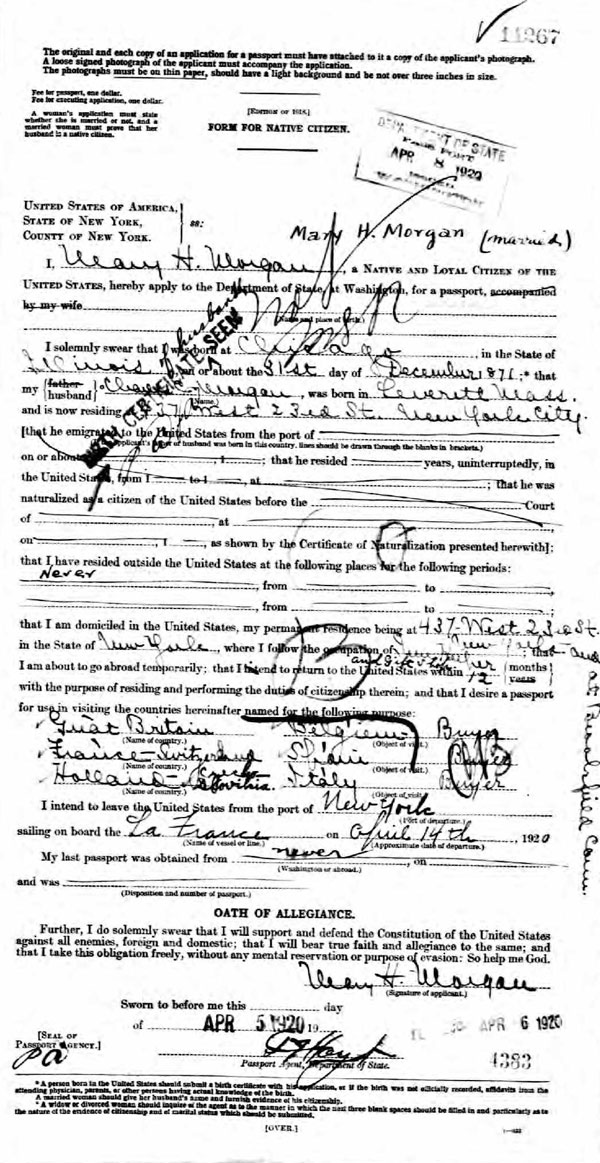 11267
The original and each copy of an application for a passport must have attached to it a copy of the applicant's photograph.
A loose signed photograph of the applicant must accompany the application.
The photographs must be on thin paper, should have a light background and be not over three inches in size.
Fee for passport, one dollar.
Fee for executing application, one dollar.
A woman's application must state
whether she is married or not, and a
married woman must prove that her
husband is a native citizen.
[EDITION OF 1918.]
FORM FOR NATIVE CITIZEN.
DEPARTMENT OF STATE
PASSPORT
APR 8 1920
ISSUED
WASHINGTON
UNITED STATES OF AMERICA,
STATE OF NEW YORK,
COUNTY OF NEW YORK.
ss:
Mary H. Morgan (married)
I, Mary H. Morgan, a NATIVE AND LOYAL CITIZEN OF THE
UNITED STATES, hereby apply to the Department of State, at Washington, for a passport, accompanied
by my wife
(Name and place of birth.)
I solemnly swear that I was born at Chicago, in the State of
Illinois, on or about the 31st day of December 1871;* that
my {father husband} Morgan, was born in Leverett Mass.
(Name.)
and is now residing 437 West 23rd St. New York City.
[that he emigrated to the United States from the port of
(If applicant's father or husband was born in this country, lines should be drawn through the blanks in brackets.)
on or about, 1; that he resided years, uninterruptedly, in
the United States, from 1 to 1, at; that he was
naturalized as a citizen of the United States before the Court
of, at,
on, 1, as shown by the Certificate of Naturalization presented herewith];
that I have resided outside the United States at the following places for the following periods:
Never
, from to
, from to ;
that I am domiciled in the United States, my permanent residence being at 437 West 23rd St.
in the State of New York, where I follow the occupation of; that
I am about to go abroad temporarily; that I intend to return to the United States within 12 {months years
with the purpose of residing and performing the duties of citizenship therein; and that I desire a passport
for use in visiting the countries hereinafter named for the following purpose:
Great Britain Belgium Buyer
(Name of country.) (Object of visit.)
France Switzerland Spain Buyer
(Name of country.) (Object of visit.)
Holland Italy Buyer
(Name of country.) (Object of visit.)
I intend to leave the United States from the port of New York
(Port of departure.)
sailing on board the La France on April 14th, 1920
(Name of vessel or line.) (Approximate date of departure.)
My last passport was obtained from never, on
(Washington or abroad.)
and was
(Disposition and number of passport.)
OATH OF ALLEGIANCE.
Further, I do solemnly swear that I will support and defend the Constitution of the United States
against all enemies, foreign and domestic; that I will bear true faith and allegiance to the same; and
that I take this obligation freely, without any mental reservation or purpose of evasion: So help me God.
Mary H. Morgan
(Signature of applicant.)
Sworn to before me this day
of APR 5 1920 19
APR 6 1920
[SEAL OF
PASSPORT AGENCY.]
Passport Agent, Department of State.
4383
* A person born in the United States should submit a birth certificate with his application, or if the birth was not officially recorded, affidavits from the
attending physician, parents, or other persons having actual knowledge of the birth.
A married woman should give her husband's name and furnish evidence of his citizenship.
* A widow or divorced woman should inquire of the agent as to the manner in which the next three blank spaces should be filled in and particularly as to
the nature of the evidence of citizenship and of marital status which should be submitted.
[OVER.]